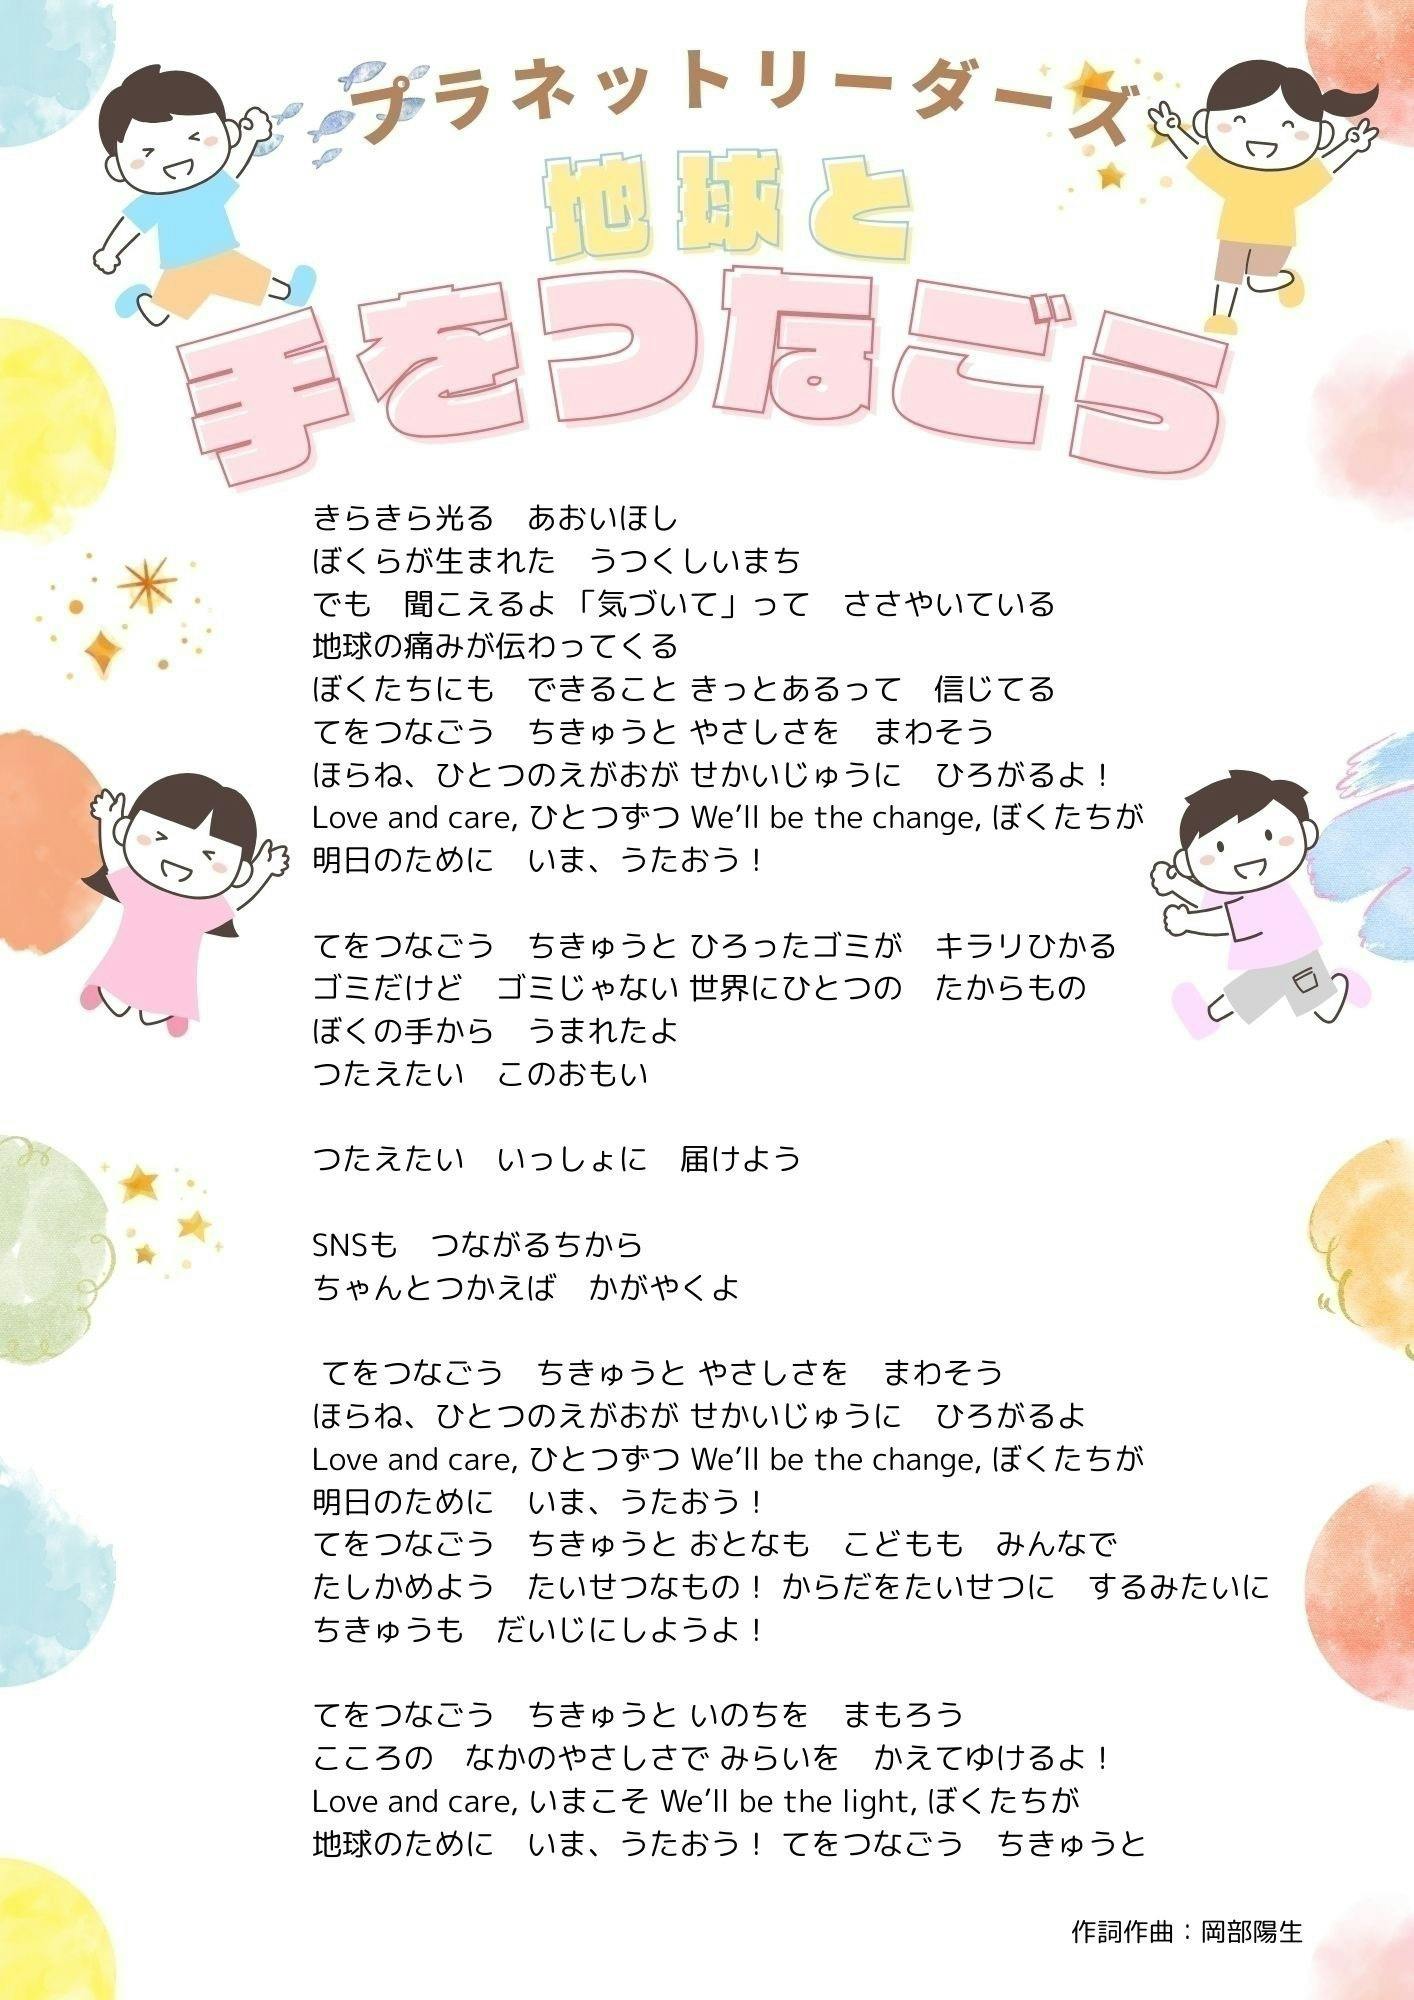 プラネットリーダーズ
地球と
手をつなごう
きらきら光る　あおいほし
ぼくらが生まれた　うつくしいまち
でも　聞こえるよ「気づいて」って　ささやいている
地球の痛みが伝わってくる
ぼくたちにも　できること きっとあるって　信じてる
てをつなごう　ちきゅうと やさしさを　まわそう
ほらね、ひとつのえがおが せかいじゅうに　ひろがるよ！
Love and care, ひとつずつ We’ll be the change, ぼくたちが
明日のために　いま、うたおう！
てをつなごう　ちきゅうと ひろったゴミが　キラリひかる
ゴミだけど　ゴミじゃない 世界にひとつの　たからもの
ぼくの手から　うまれたよ
つたえたい　このおもい
つたえたい　いっしょに　届けよう
SNSも　つながるちから
ちゃんとつかえば　かがやくよ
てをつなごう　ちきゅうと やさしさを　まわそう
ほらね、ひとつのえがおが せかいじゅうに　ひろがるよ
Love and care, ひとつずつ We’ll be the change, ぼくたちが
明日のために　いま、うたおう！
てをつなごう　ちきゅうと おとなも　こどもも　みんなで
たしかめよう　たいせつなもの！ からだをたいせつに　するみたいに
ちきゅうも　だいじにしようよ！
てをつなごう　ちきゅうと いのちを　まもろう
こころの　なかのやさしさで みらいを　かえてゆけるよ！
Love and care, いまこそ We’ll be the light, ぼくたちが
地球のために　いま、うたおう！ てをつなごう　ちきゅうと
作詞作曲：岡部陽生